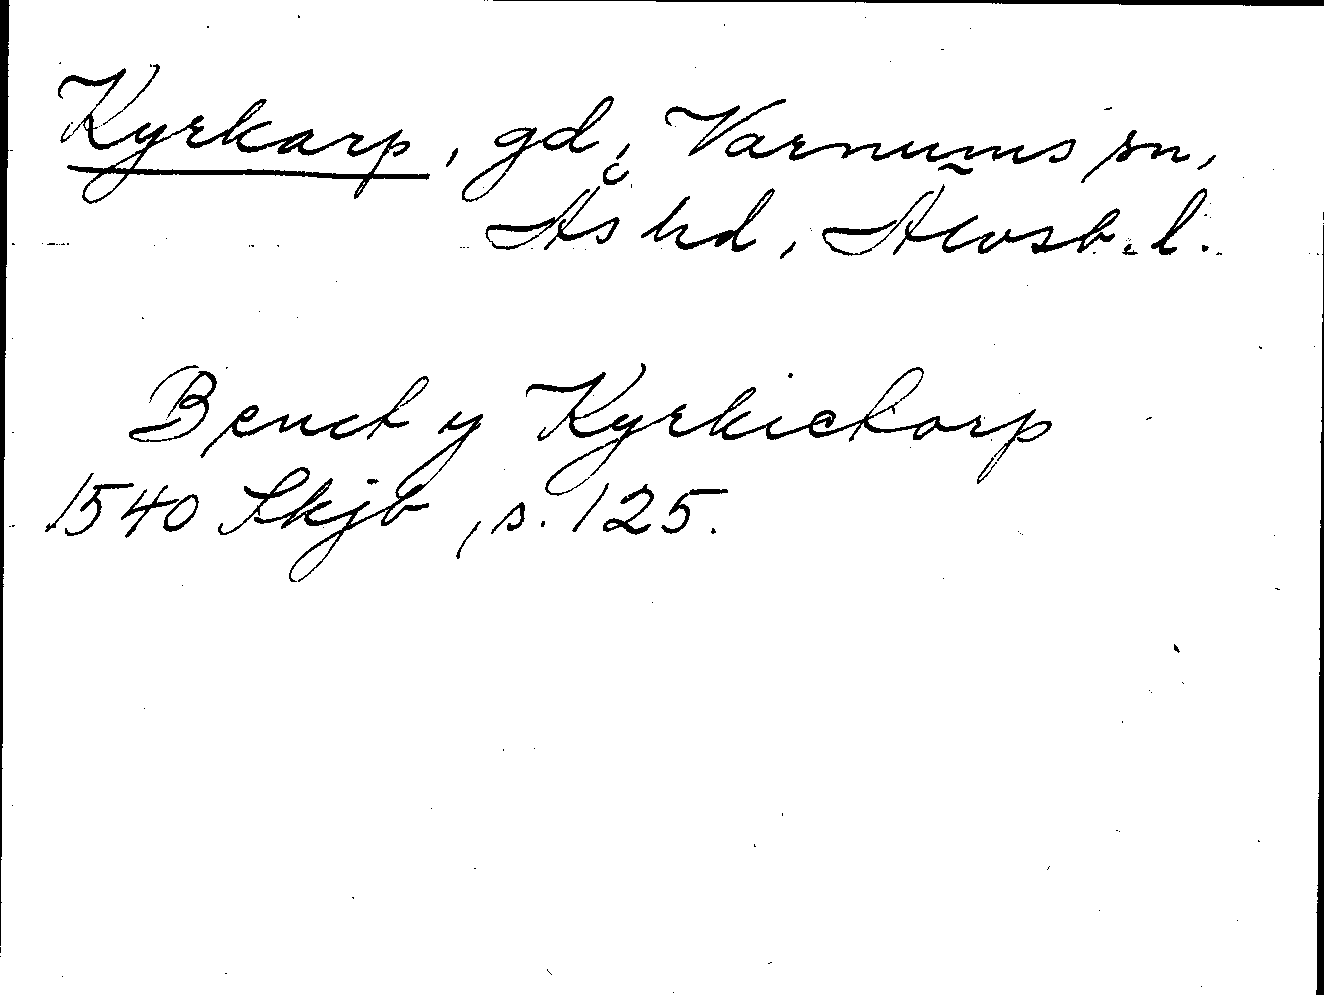 Kyrkarp, gd, Varnums sn,
Ås hd, Älvsb. l.
Benct y Kyrkietorp
1540 Skjb, s. 125.